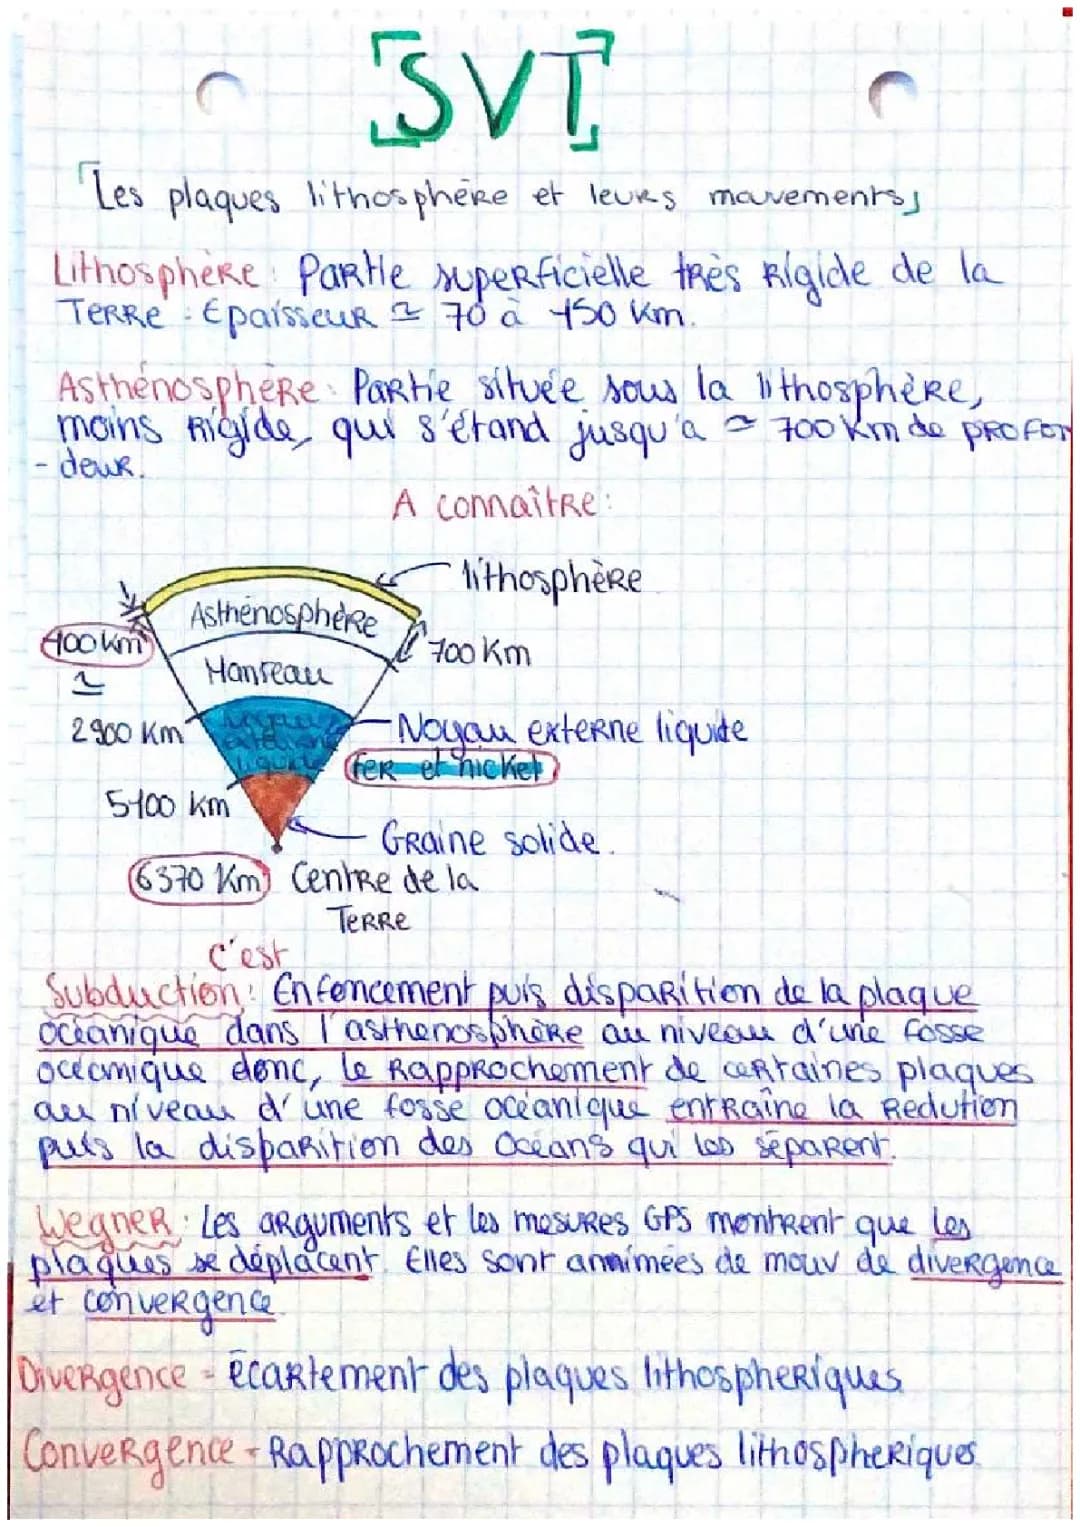 SVT
Les plaques lithosphère et leurs mouvements
Lithosphère : Partie superficielle très Rigide de la
Terre : Epaisseur ≃ 70 à 150 Km.
Asthénosphère : Partie située sous la lithosphère,
moins Rigide, qui s'étand jusqu'a ≃ 700 Km de profon
- deur.
A connaître :
lithosphère
Asthénosphère
100 Km
≃
700 Km
Manteau
2900 Km
Noyau externe liquide
Noyau externe liquide
fer et nickel
5100 Km
Graine solide.
6370 Km Centre de la
Terre
c'est
Subduction : Enfoncement puis disparition de la plaque
océanique dans l'asthenosphère au niveau d'une fosse
océanique donc, le Rapprochement de certaines plaques
au niveau d'une fosse océanique entraîne la Rédution
puis la disparition des Océans qui les séparent.
Wegner : Les arguments et les mesures GPS montrent que les
plaques se déplacent. Elles sont annimées de mouv de divergence
et convergence.
Divergence = écartement des plaques lithospheriques
Convergence = Rapprochement des plaques lithospheriques.